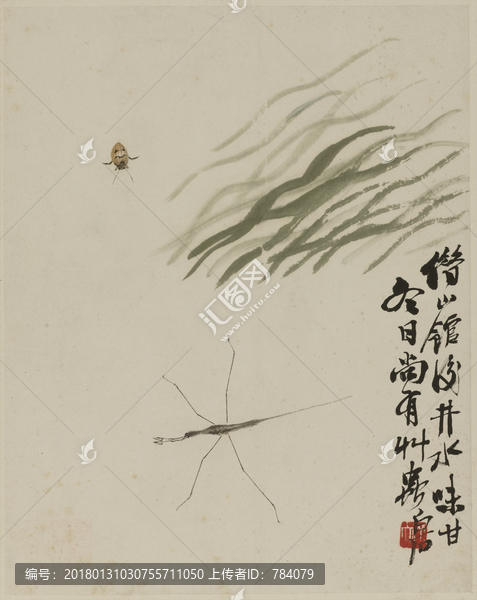 借山館後井水味甘
冬日尚有艸蟲白石
汇图网
编号：20180131030755711050 上传者ID：784079